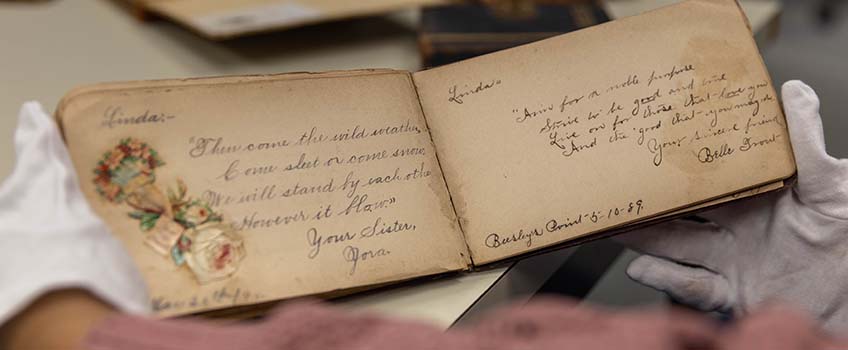 Linda:-
"Then come the wild weather,
Come sleet or come snow,
We will stand by each other
However it blow."
Your Sister,
Linda:
"Aim for a noble purpose
Strive to be good and true
Live on for those that love you
And the good that you may do.
Your sincere friend
Belle Trout
Beesley's Point 5-10-89.